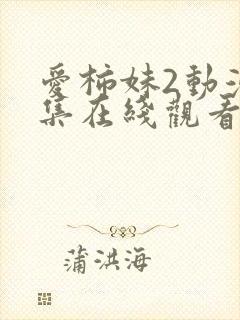 愛柿妹2動漫
集在綫觀看
蒲洪海